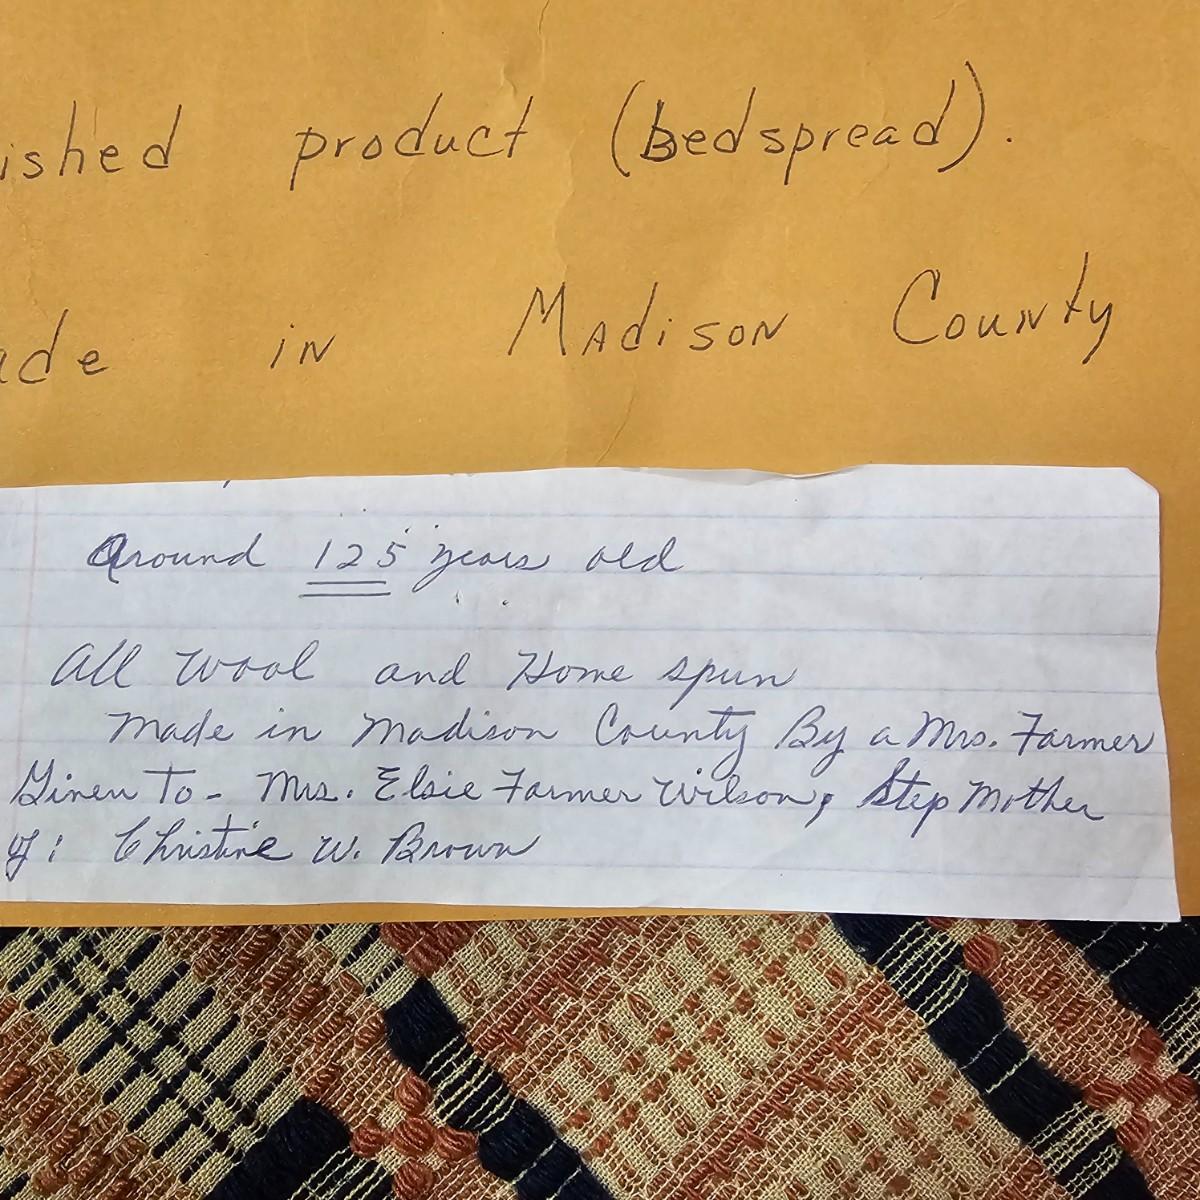 ished product (bedspread).
ade in Madison County
Around 125 years old
All Wool and Home spun
Made in Madison County By a Mrs. Farmer
Given To - Mrs. Elsie Farmer Wilson, Step Mother
of: Christine W. Brown